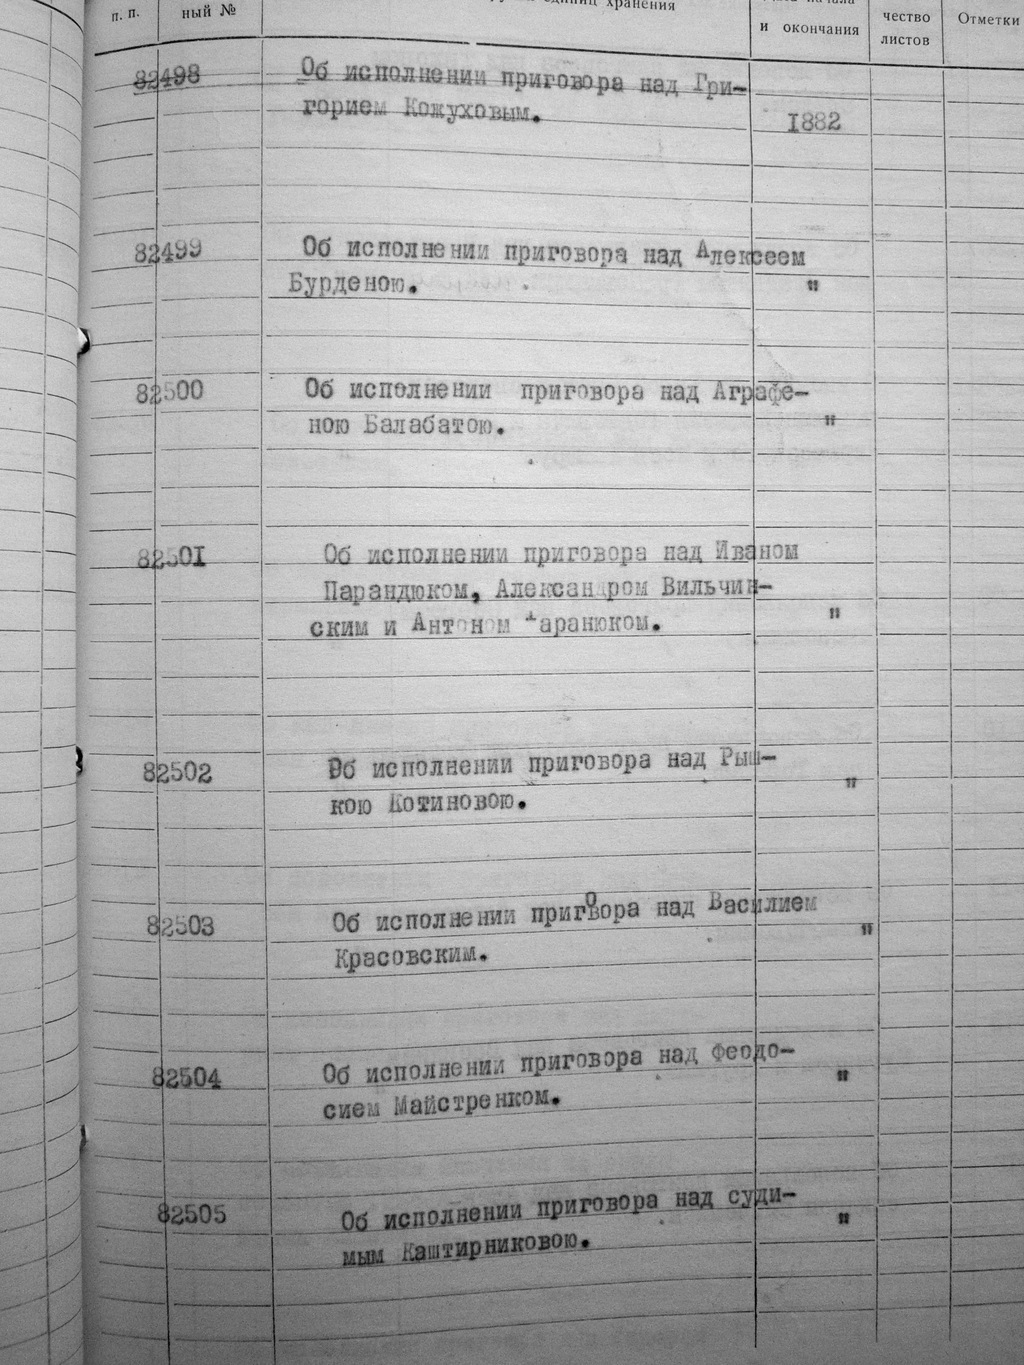 п. п.
ный №
единиц хранения
и окончания
чество
листов
Отметки
82498 Об исполнении приговора над Гри-
горием Кожуховым.
1882
82499 Об исполнении приговора над Алексеем
Бурденою. "
82500 Об исполнении приговора над Аграфе-
ною Балабатою. "
82501 Об исполнении приговора над Иваном
Парандюком, Александром Вильчин-
ским и Антоном аранюком. "
82502 Об исполнении приговора над Рыш-
кою Котиновою. "
82503 Об исполнении приговора над Василием
Красовским. "
82504 Об исполнении приговора над Феодо-
сием Майстренком. "
82505 Об исполнении приговора над суди-
мым Каштирниковою. "